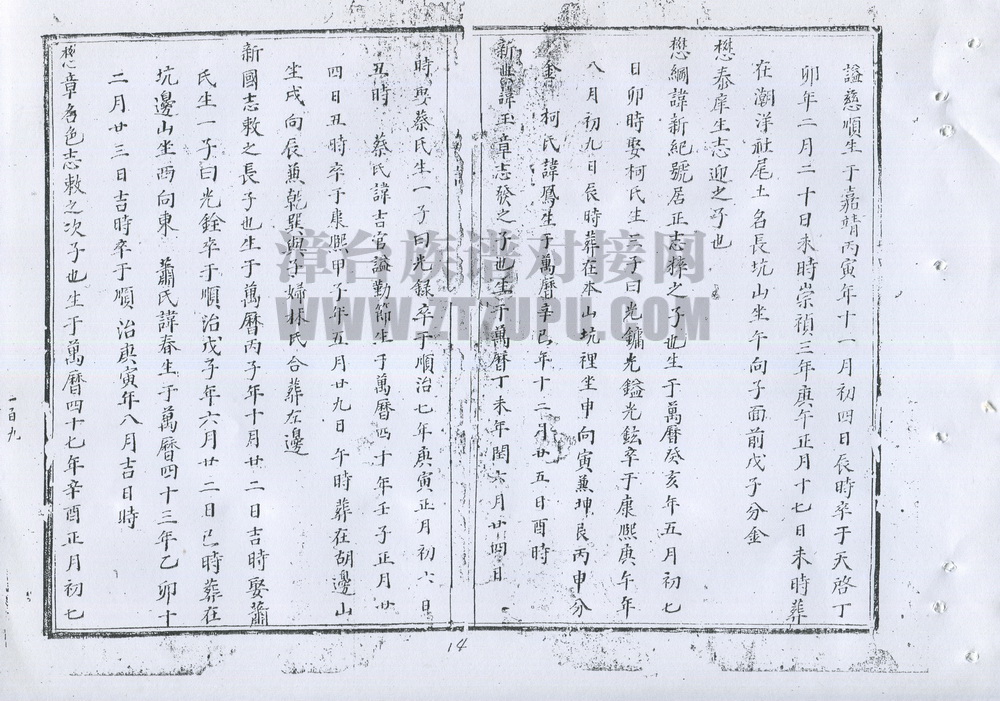 諡慈順生于嘉靖丙寅年十一月初四日辰時卒于天啓丁
卯年二月二十日未時崇禎三年庚午正月十七日未時葬
在潮洋社尾土名長坑山坐午向子面前戊子分金
懋泰庠生志迎之子也
懋綱諱新紀號居正志梓之子也生于萬曆癸亥年五月初七
日卯時娶柯氏生三子曰光鏞光鎰光鉉卒于康熙庚午年
八月初九日辰時葬在本山坑裡坐申向寅兼坤艮丙申分
金 柯氏諱鳳生于萬曆辛巳年十二月廿五日酉時
新 諱玉章志發之子也生于萬曆丁未年閏六月廿四日
時娶蔡氏生一子曰光錄卒于順治七年庚寅正月初六日
丑時 蔡氏諱吉官諡勤節生于萬曆四十年壬子正月廿
四日丑時卒于康熙甲子年五月廿九日午時葬在胡邊山
坐戌向辰兼乾巽與子婦林氏合葬左邊
新國志敕之長子也生于萬曆丙子年十月廿二日吉時娶蕭
氏生一子曰光銓卒于順治戊子年六月廿二日巳時葬在
坑邊山坐西向東 蕭氏諱春生于萬曆四十三年乙卯十
二月廿三日吉時卒于順治庚寅年八月吉日時
懋章名色志敕之次子也生于萬曆四十七年辛酉正月初七
一百九
14
漳台族谱对接网
WWW.ZTZUPU.COM